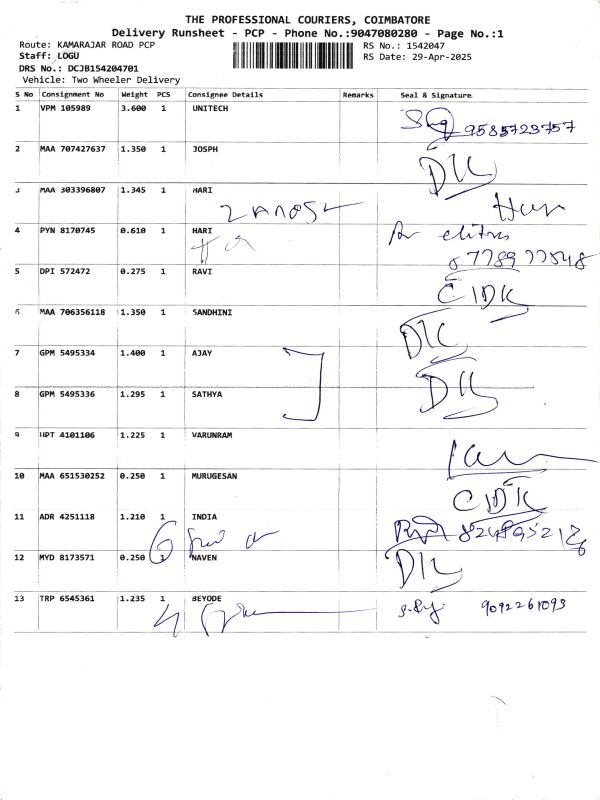 THE PROFESSIONAL COURIERS, COIMBATORE
Delivery Runsheet - PCP - Phone No.:9047080280 - Page No.:1
Route: KAMARAJAR ROAD PCP RS No.: 1542047
Staff: LOGU RS Date: 29-Apr-2025
DRS No.: DCJB154204701
Vehicle: Two Wheeler Delivery
S No Consignment No Weight PCS Consignee Details Remarks Seal & Signature
1 VPM 105989 3.600 1 UNITECH
9585723757
2 MAA 707427637 1.350 1 JOSPH
DK
3 MAA 303396807 1.345 1 HARI
4 PYN 8170745 0.610 1 HARI
5 DPI 572472 0.275 1 RAVI
CIDK
6 MAA 706356118 1.350 1 SANDHINI
DK
7 GPM 5495334 1.400 1 AJAY
8 GPM 5495336 1.295 1 SATHYA
DK
9 UPT 4101106 1.225 1 VARUNRAM
10 MAA 651530252 0.250 1 MURUGESAN
CIDK
11 ADR 4251118 1.210 1 INDIA
12 MYD 8173571 0.250 1 NAVEN
DK
13 TRP 6545361 1.235 1 BEYODE
9092261093